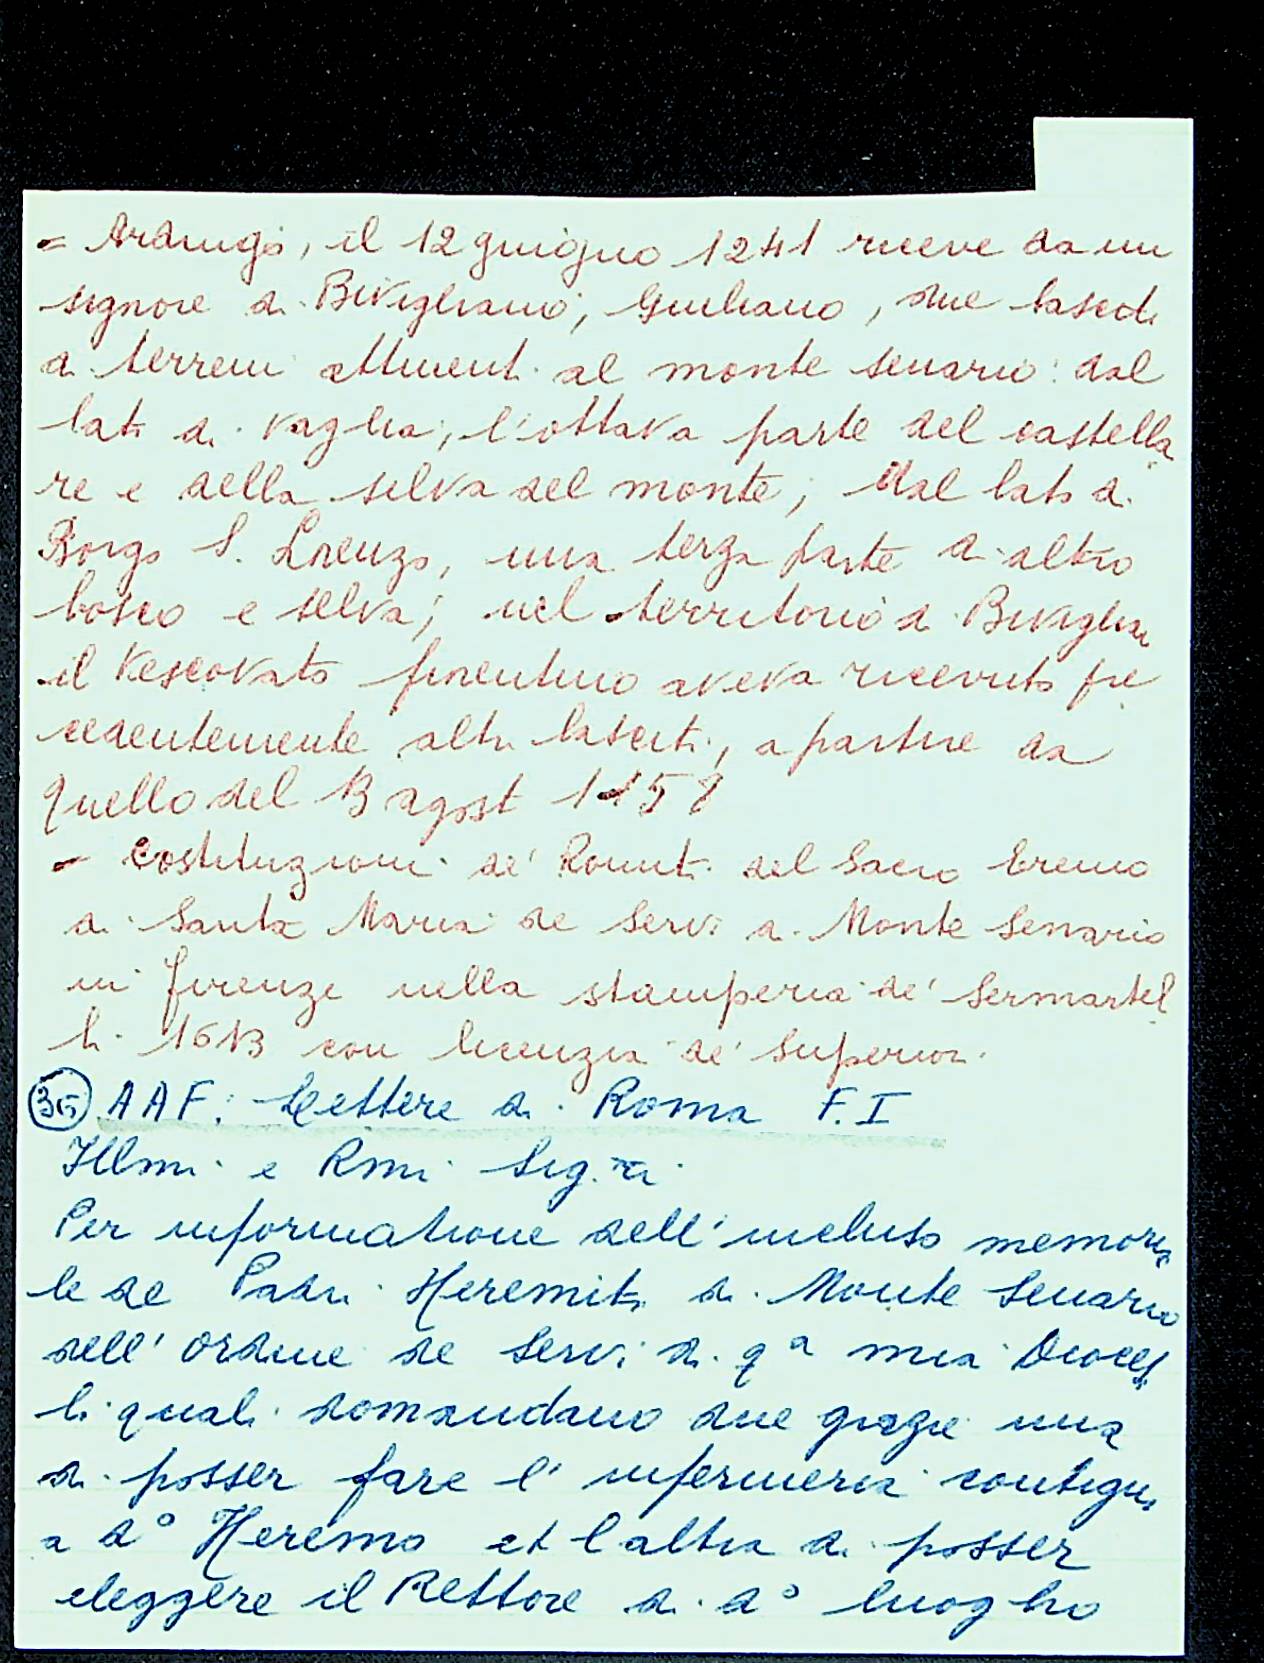 = Ardingo, il 12 giugno 1241 riceve da un
signore di Bivigliano, Giuliano, due lasciti
di terreni attinenti al monte senario: dal
lato di Vaglia, l'ottava parte del castella
re e della selva del monte; dal lato di
Borgo S. Lorenzo, una terza parte di altro
bosco e selva; nel territorio di Bivigliano
il Vescovato fiorentino aveva ricevuto pre
cedentemente altri lasciti, a partire da
quello del 13 agost 1158
- Costituzioni de' Romiti del Sacro Eremo
di Santa Maria de Servi di Monte Senario
in firenze nella stamperia de' Sermartel
li 1613 con licenzia de' Superiori.
AAF: Lettere di Roma F. I
Illmi e Rmi Sig.ri
Per informatione dell'incluso memoria
le de Padri Heremiti di Monte Senario
dell'ordine de Servi di qa mia Diocesi
li quali domandano due grazie una
di posser fare l'infermeria contigua
a do Heremo et l'altra di posser
eleggere il Rettore di do luogho